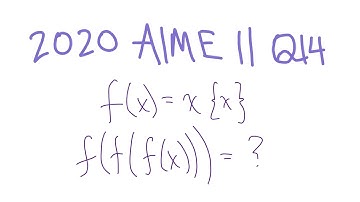 2020 AIME II Q14
f(x) = x {x}
f(f(f(x))) = ?